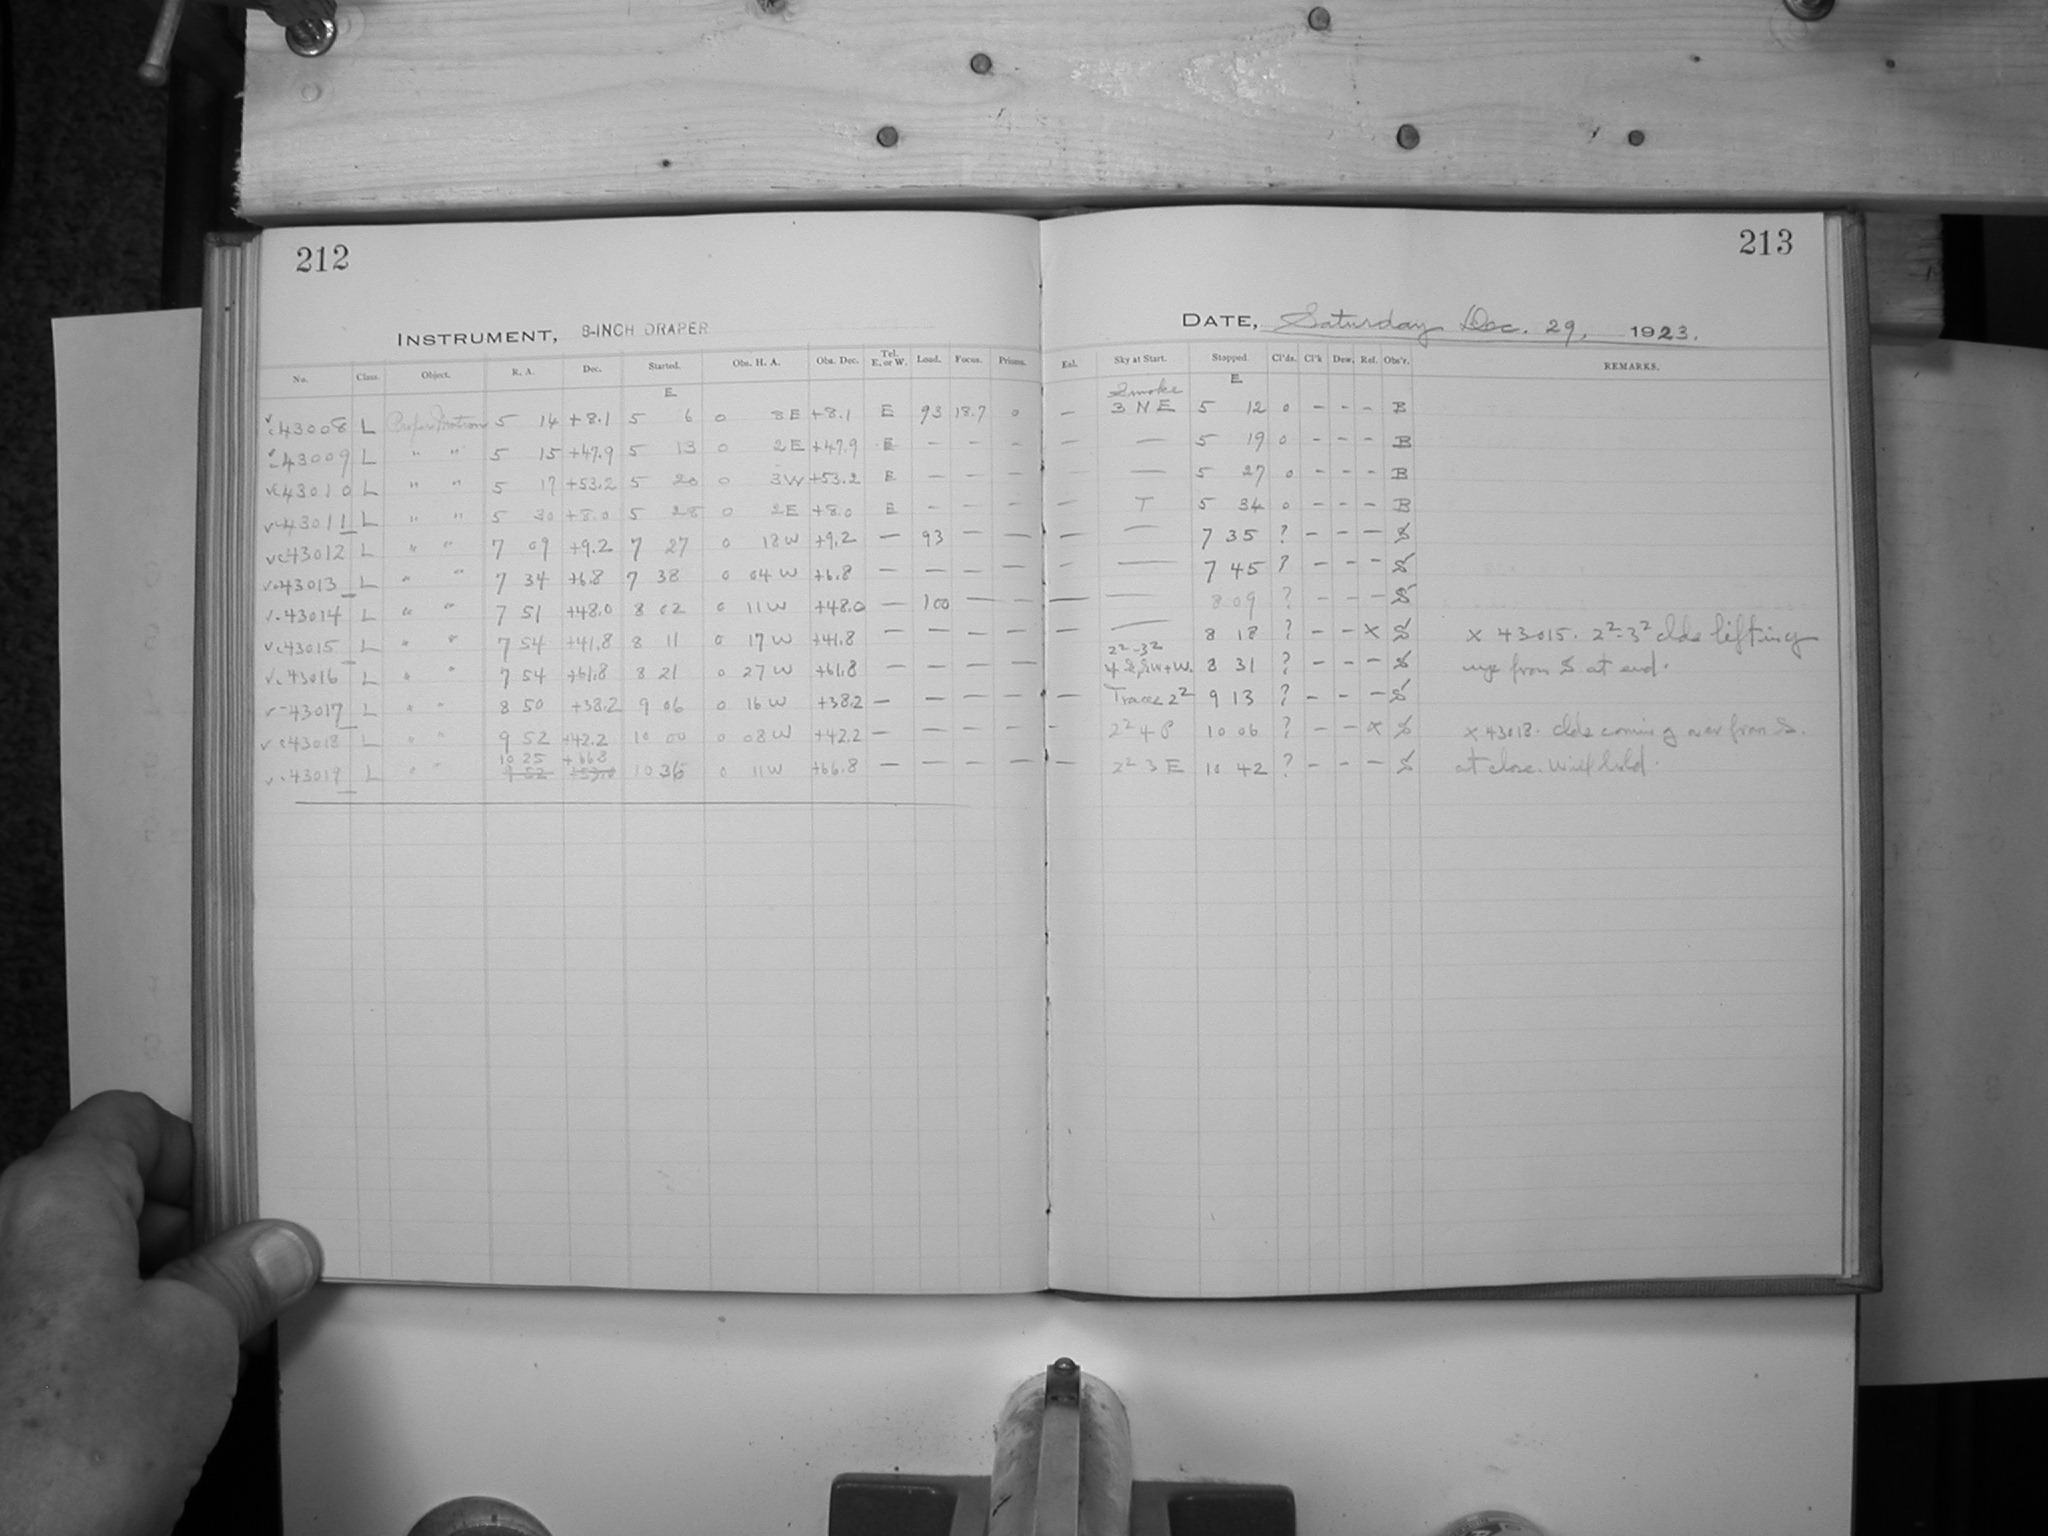 212
213
INSTRUMENT, 8-INCH DRAPER
DATE, Saturday Dec. 29, 1923.
No. Class. Object. R. A. Dec. Started. Obs. H. A. Obs. Dec. Tel. E. or W. Load. Focus. Prisms. Exl. Sky at Start. Stopped Cl'ds. Cl'k Dew. Ref. Obs'r. REMARKS.
E Smoke E
43008 L Proper Motion 5 14 +8.1 5 6 0 8E +8.1 E 93 18.7 0 — 3 N E 5 12 0 - - - B
43009 L " " 5 15 +47.9 5 13 0 2E +47.9 E - - - — — 5 19 0 - - - B
43010 L " " 5 17 +53.2 5 20 0 3W +53.2 E - - - — — 5 27 0 - - - B
43011 L " " 5 30 +8.0 5 28 0 2E +8.0 E - - - — T 5 34 0 - - - B
43012 L " " 7 09 +9.2 7 27 0 18W +9.2 — 93 — — — — 7 35 ? - - - S
43013 L " " 7 34 +6.8 7 38 0 04W +6.8 — — — — — — 7 45 ? - - - S
43014 L " " 7 51 +48.0 8 02 0 11W +48.0 — 100 — — — — 8 09 ? - - - S
43015 L " " 7 54 +41.8 8 11 0 17W +41.8 — — — — — — 8 18 ? - - x S x 43015. 2²-3² clds lifting
2²-3²
43016 L " " 7 54 +61.8 8 21 0 27W +61.8 — — — — — 4 S, SW+W. 8 31 ? - - - S up from S at end.
43017 L " " 8 50 +38.2 9 06 0 16W +38.2 — — — — — Traces 2² 9 13 ? - - - S
43018 L " " 9 52 +42.2 10 00 0 08W +42.2 — — — — — 2² 4 P 10 06 ? - - x S x 43018. clds coming over from S.
10 25 +66.8
43019 L " " 9 52 10 36 0 11W +66.8 — — — — — 2² 3 E 10 42 ? - - - S at close. Will hold.